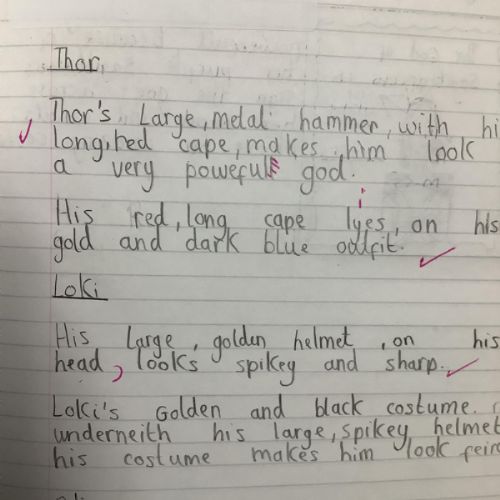 Thor,
Thor's Large, metal hammer, with hi
long, red cape, makes him look
a very powefull god.
His red, long cape lyes, on his
gold and dark blue outfit.
Loki
His large, golden helmet, on his
head, looks spikey and sharp.
Loki's Golden and black costume.
underneith his large, spikey helmet
his costume makes him look feir